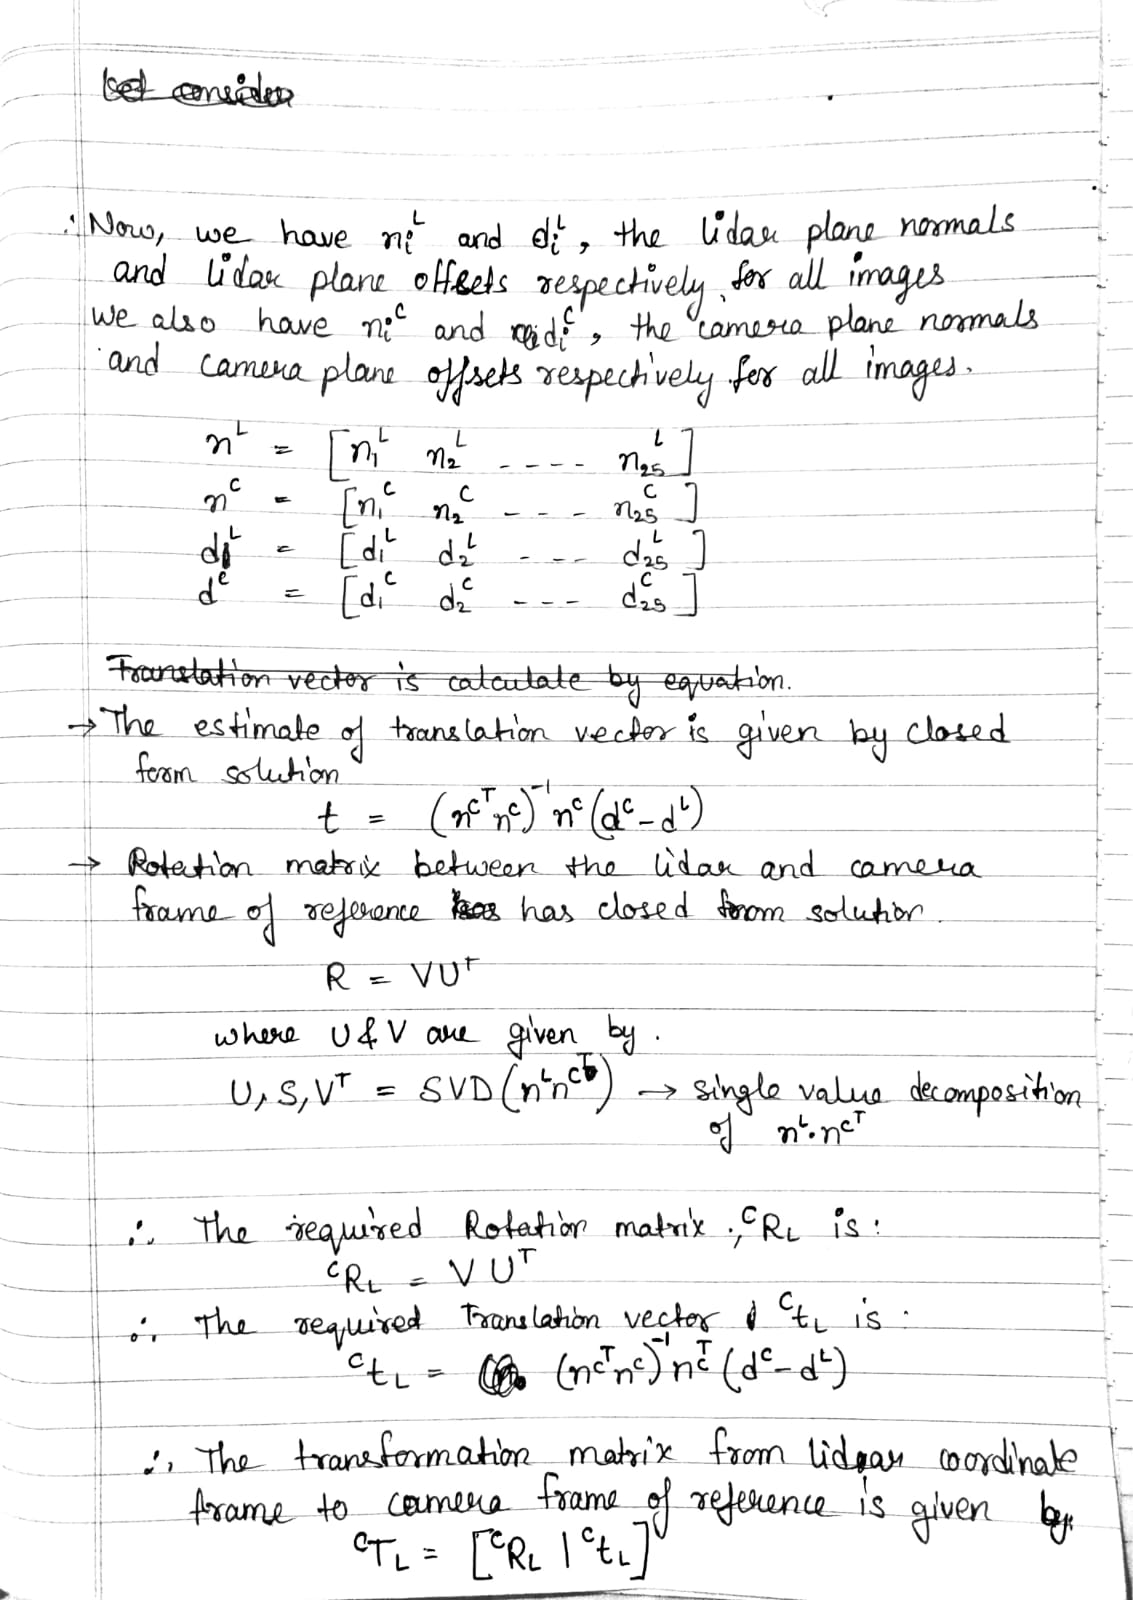 Let consider
∴ Now, we have nᵢᴸ and dᵢᴸ, the lidar plane normals
and lidar plane offsets respectively, for all images
we also have nᵢᶜ and dᵢᶜ, the camera plane normals
and camera plane offsets respectively for all images.
nᴸ = [n₁ᴸ n₂ᴸ ---- n₂₅ᴸ]
nᶜ = [n₁ᶜ n₂ᶜ --- n₂₅ᶜ]
dᴸ = [d₁ᴸ d₂ᴸ --- d₂₅ᴸ]
dᶜ = [d₁ᶜ d₂ᶜ --- d₂₅ᶜ]
Translation vector is calculate by equation.
→ The estimate of translation vector is given by closed
form solution
t = (nᶜᵀnᶜ)⁻¹nᶜ(dᶜ-dᴸ)
→ Rotation matrix between the lidar and camera
frame of reference has closed form solution.
R = VUᵀ
where U & V are given by.
U, S, Vᵀ = SVD(nᴸnᶜᵀ) → single value decomposition
of nᴸ.nᶜᵀ
∴ The required Rotation matrix ;, ᶜR_L is :
ᶜR_L = VUᵀ
∴ The required Translation vector ᶜt_L is :
ᶜt_L = (nᶜᵀnᶜ)⁻¹nᶜᵀ(dᶜ-dᴸ)
∴ The transformation matrix from lidar coordinate
frame to camera frame of reference is given by:
ᶜT_L = [ᶜR_L | ᶜt_L]